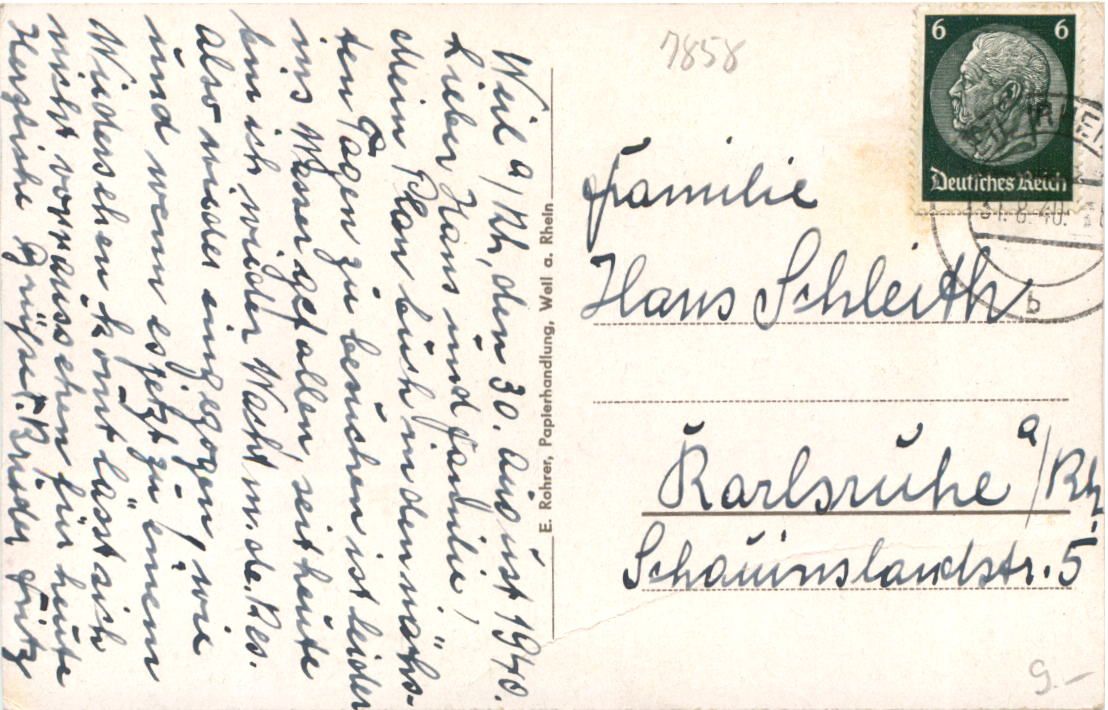 Weil a/Rh, den 30. August 1940.
Lieber Hans und Familie,
Mein Plan euch in den näch-
ten Tagen zu besuchen ist leider
ins Wasser gefallen, seit heute
bin ich wieder Wacht m. de. Res.
also wieder eingezogen, wie
und wenn es jetzt zu einem
Wiedersehen kömt lässt sich
nicht vorraussehen für heute
Herzliche Grüsse E. Bruder Fritz
E. Rohrer, Papierhandlung, Weil a. Rhein
7858
6 6
Deutsches Reich
31.8.40.
b
Familie
Hans Schleith
Karlsruhe a/Rh.
Schauinslandstr. 5
9.–